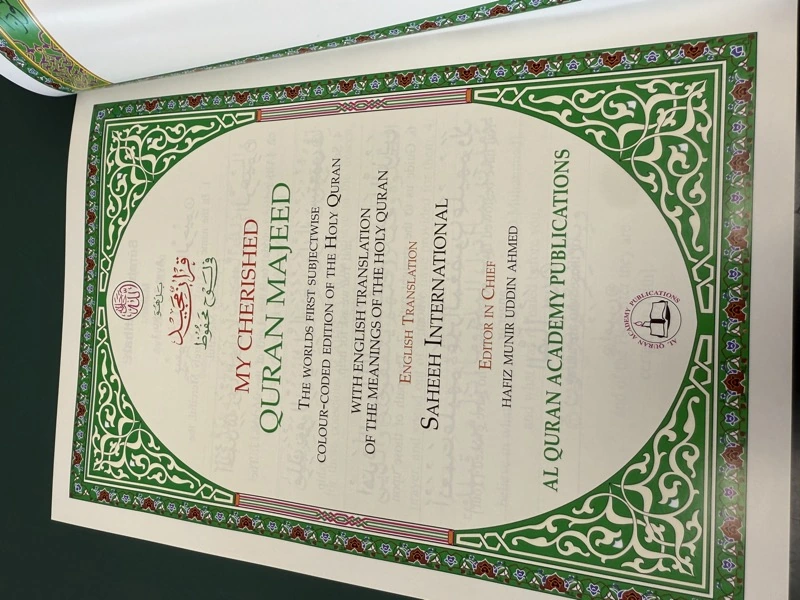 بَلْ هُوَ
قُرْآنٌ مَّجِيدٌ
فِي لَوْحٍ مَّحْفُوظٍ
MY CHERISHED
QURAN MAJEED
THE WORLDS FIRST SUBJECTWISE
COLOUR-CODED EDITION OF THE HOLY QURAN
WITH ENGLISH TRANSLATION
OF THE MEANINGS OF THE HOLY QURAN
ENGLISH TRANSLATION
SAHEEH INTERNATIONAL
EDITOR IN CHIEF
HAFIZ MUNIR UDDIN AHMED
AL QURAN ACADEMY PUBLICATIONS
AL QURAN ACADEMY PUBLICATIONS